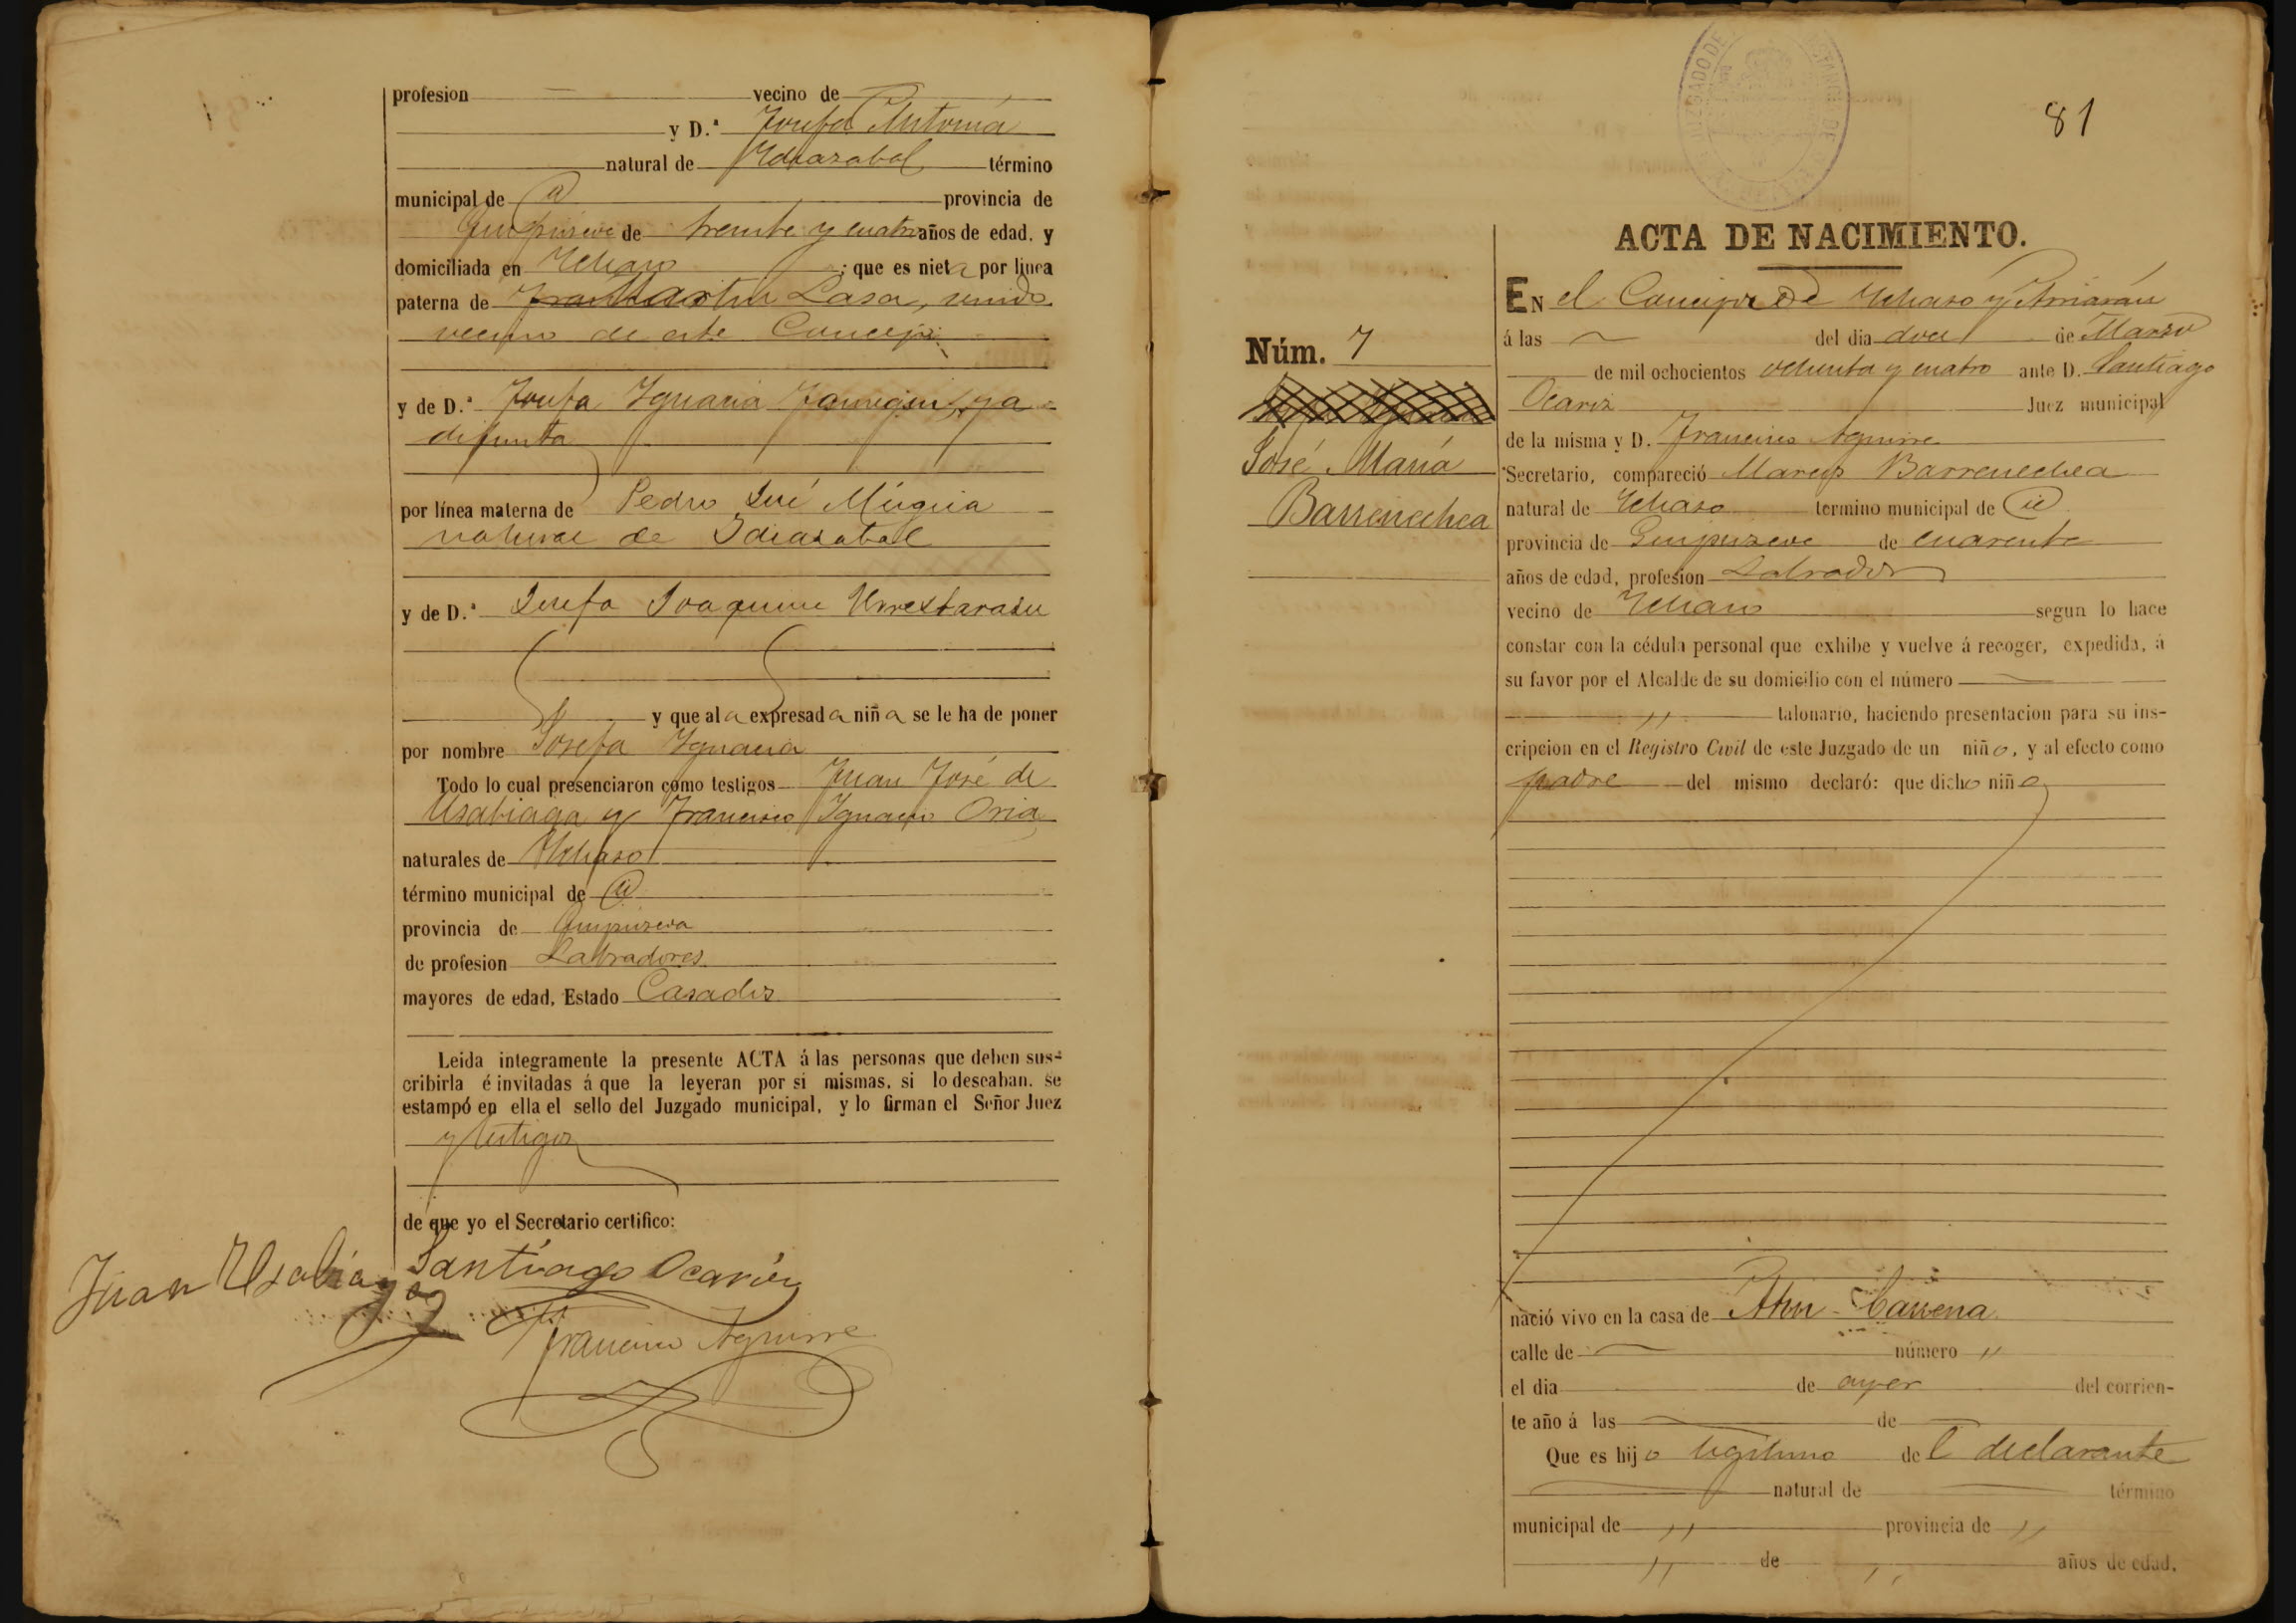 profesion vecino de
y D.ª Josefa Antonia
natural de Ydiazabal término
municipal de id provincia de
Guipuzcoa de treinta y cuatro años de edad, y
domiciliada en Ychaso ; que es nieta por linea
paterna de Martin Lasa, viudo
vecino de este Concejo
y de D.ª Josefa Ygnacia Jauregui, ya
difunta
por línea materna de Pedro José Múgica
natural de Idiazabal
y de D.ª Josefa Joaquina Urrestarazu
y que al a expresad a niñ a se le ha de poner
por nombre Josefa Ygnacia
Todo lo cual presenciaron como testigos Juan José de
Usabiaga y Francisco Ygnacio Oria
naturales de Ychaso
término municipal de id
provincia de Guipuzcoa
de profesion Labradores
mayores de edad, Estado Casados
Leida integramente la presente ACTA á las personas que deben sus-
cribirla é invitadas á que la leyeran por si mismas, si lo deseaban, se
estampó en ella el sello del Juzgado municipal, y lo firman el Señor Juez
y testigos
de que yo el Secretario certifico:
Santiago Ocariz
Juan Usabiaga
Francisco Aguirre
81
ACTA DE NACIMIENTO.
Núm. 7
José María
Barrenechea
EN el Concejo de Ychaso y Arriarán
á las del dia doce de Marzo
de mil ochocientos ochenta y cuatro ante D. Santiago
Ocariz Juez municipal
de la misma y D. Francisco Aguirre
Secretario, compareció Marcos Barrenechea
natural de Ychaso termino municipal de id
provincia de Guipuzcoa de cuarenta
años de edad, profesion Labrador
vecino de Ychaso segun lo hace
constar con la cédula personal que exhibe y vuelve á recoger, expedida, á
su favor por el Alcalde de su domicilio con el número
" talonario, haciendo presentacion para su ins-
cripcion en el Registro Civil de este Juzgado de un niño, y al efecto como
padre del mismo declaró: que dicho niño
nació vivo en la casa de Barrena
calle de número "
el dia de ayer del corrien-
te año á las de
Que es hijo legitimo de l declarante
natural de término
municipal de " provincia de "
" de " años de edad,